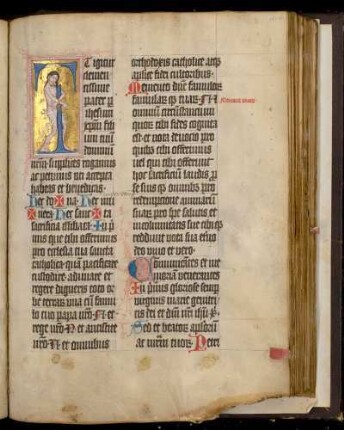 T igitur
clemen
tissime
pater p
ihesum
xpm fili
um tuū
dominū
nrm supplices rogamus
ac petimus uti accepta
habeas et benedicas
Hec do na Hec mu
nera Hec sancta
sacrificia illibata In p
mis que tibi offerimus
pro ecclesia tua sancta
catholica quā pacificare
custodire adunare et
regere digneris toto or
be terrarū una cū famu
lo tuo papa nro N et
rege nro N et antistite
nro N et omnibus
orthodoxis catholice atqʒ
aplice fidei cultoribus
Memento dūe famulorū
famularūqʒ tuarū N
Memento vivorum
omniū circūstanciū
quorū tibi fides cognita
est et nota devocio pro
quibus tibi offerimus
vel qui tibi offerunt
hoc sacrificiū laudis p
se suis qʒ omnibus pro
redempcione animarū
suarū pro spe salutis et
incolumitatis sue tibi qʒ
reddunt vota sua eterno
deo vivo et vero
Communicantes et me
moriam venerantes
In primis gloriose semp
virginis marie genitri
cis dei et dni nri ihu x
Sed et beatorū aplorū
ac mrm tuorū Petri